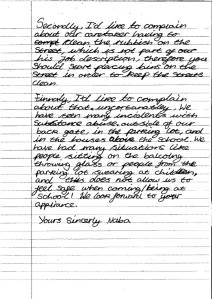 Secondly, I'd like to complain
about our caretaker having to
clean the rubbish on the
street, which is not part of our
his job description. Therefore you
should start placing bins on the
street in order to keep the streets
clean.
Finally, I'd like to complain
about that, unfortunately, we
have seen many incidents with
substance abuse, outside of our
back gate, in the parking lot, and
in the houses above the school. We
have had many situations like
people sitting on the balcony
throwing glass or people from the
parking lot swearing at children,
and this does not allow us to
feel safe when coming/being at
school! We look forward to your
appliance.
Yours Sincerly Naba